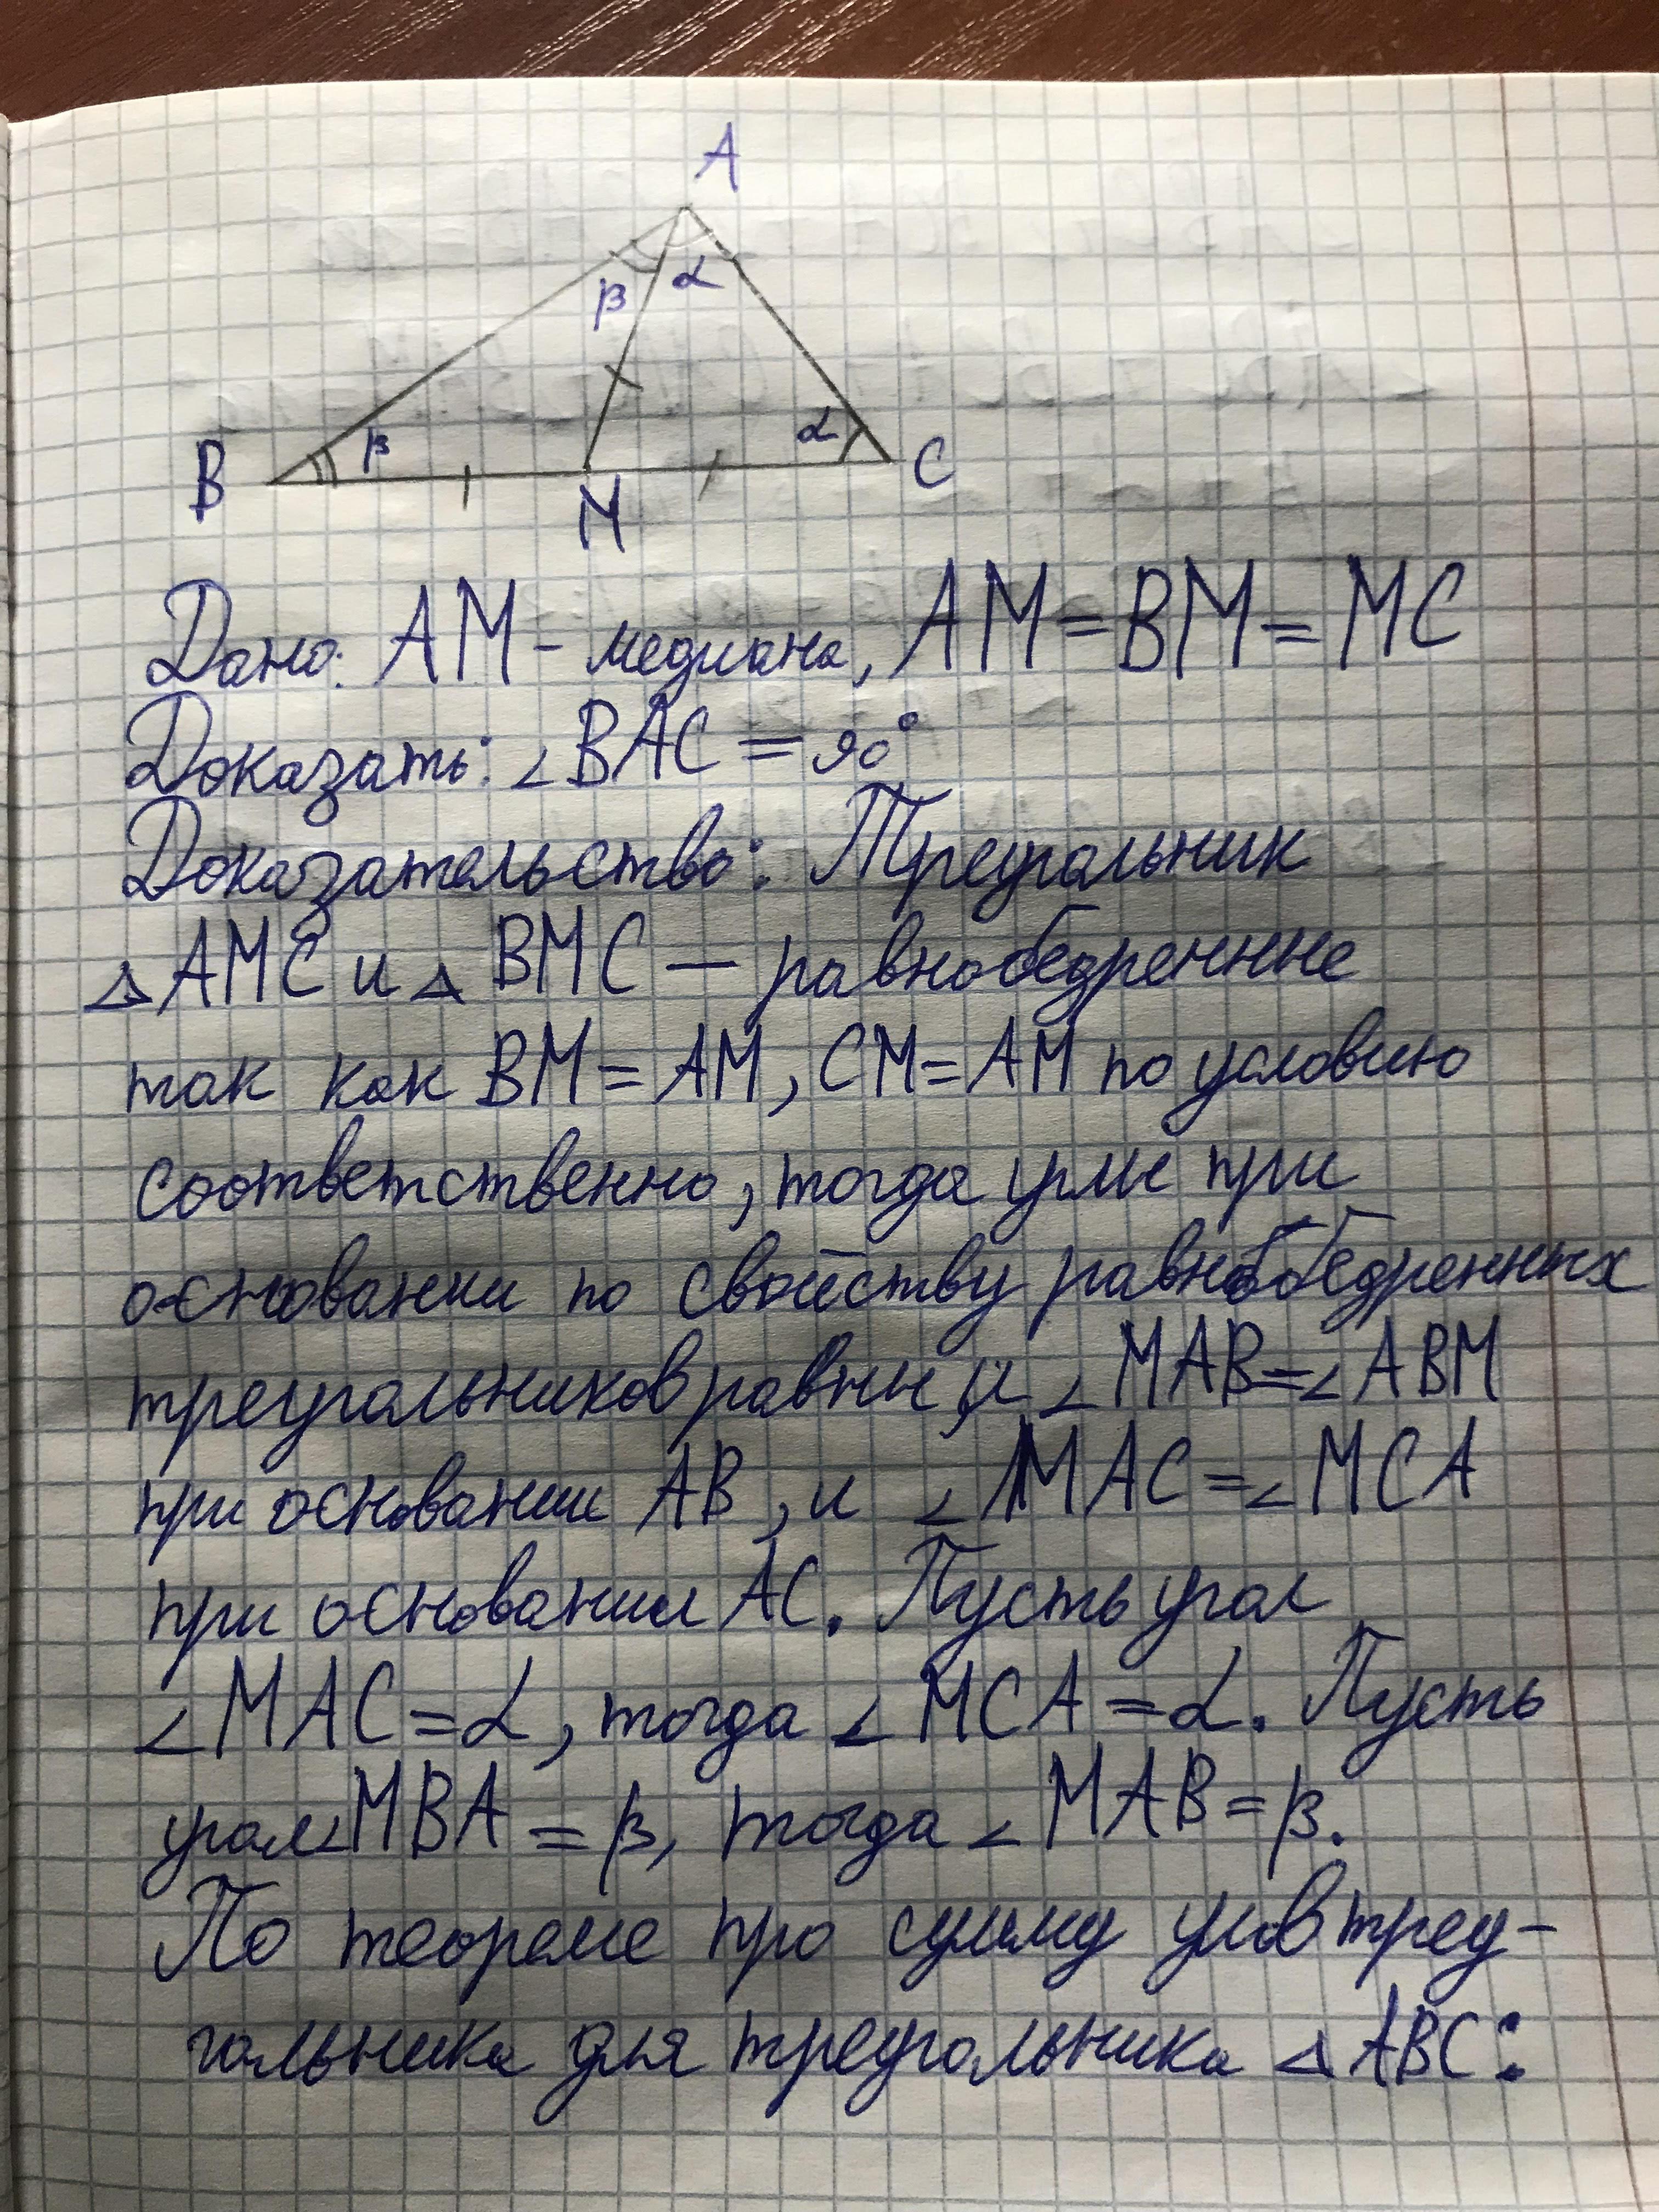 A
β α
β α
B M C
Дано: AM - медиана, AM = BM = MC
Доказать: ∠BAC = 90°
Доказательство: Треугольник
△AMC и △ BMC — равнобедренные
так как BM = AM, CM = AM по условию
соответственно, тогда углы при
основании по свойству равнобедренных
треугольников равны, и ∠MAB = ∠ABM
при основании AB, и ∠MAC = ∠MCA
при основании AC. Пусть угол
∠MAC = α, тогда ∠MCA = α. Пусть
угол ∠MBA = β, тогда ∠MAB = β.
По теореме про сумму углов треу-
гольника для треугольника △ABC: